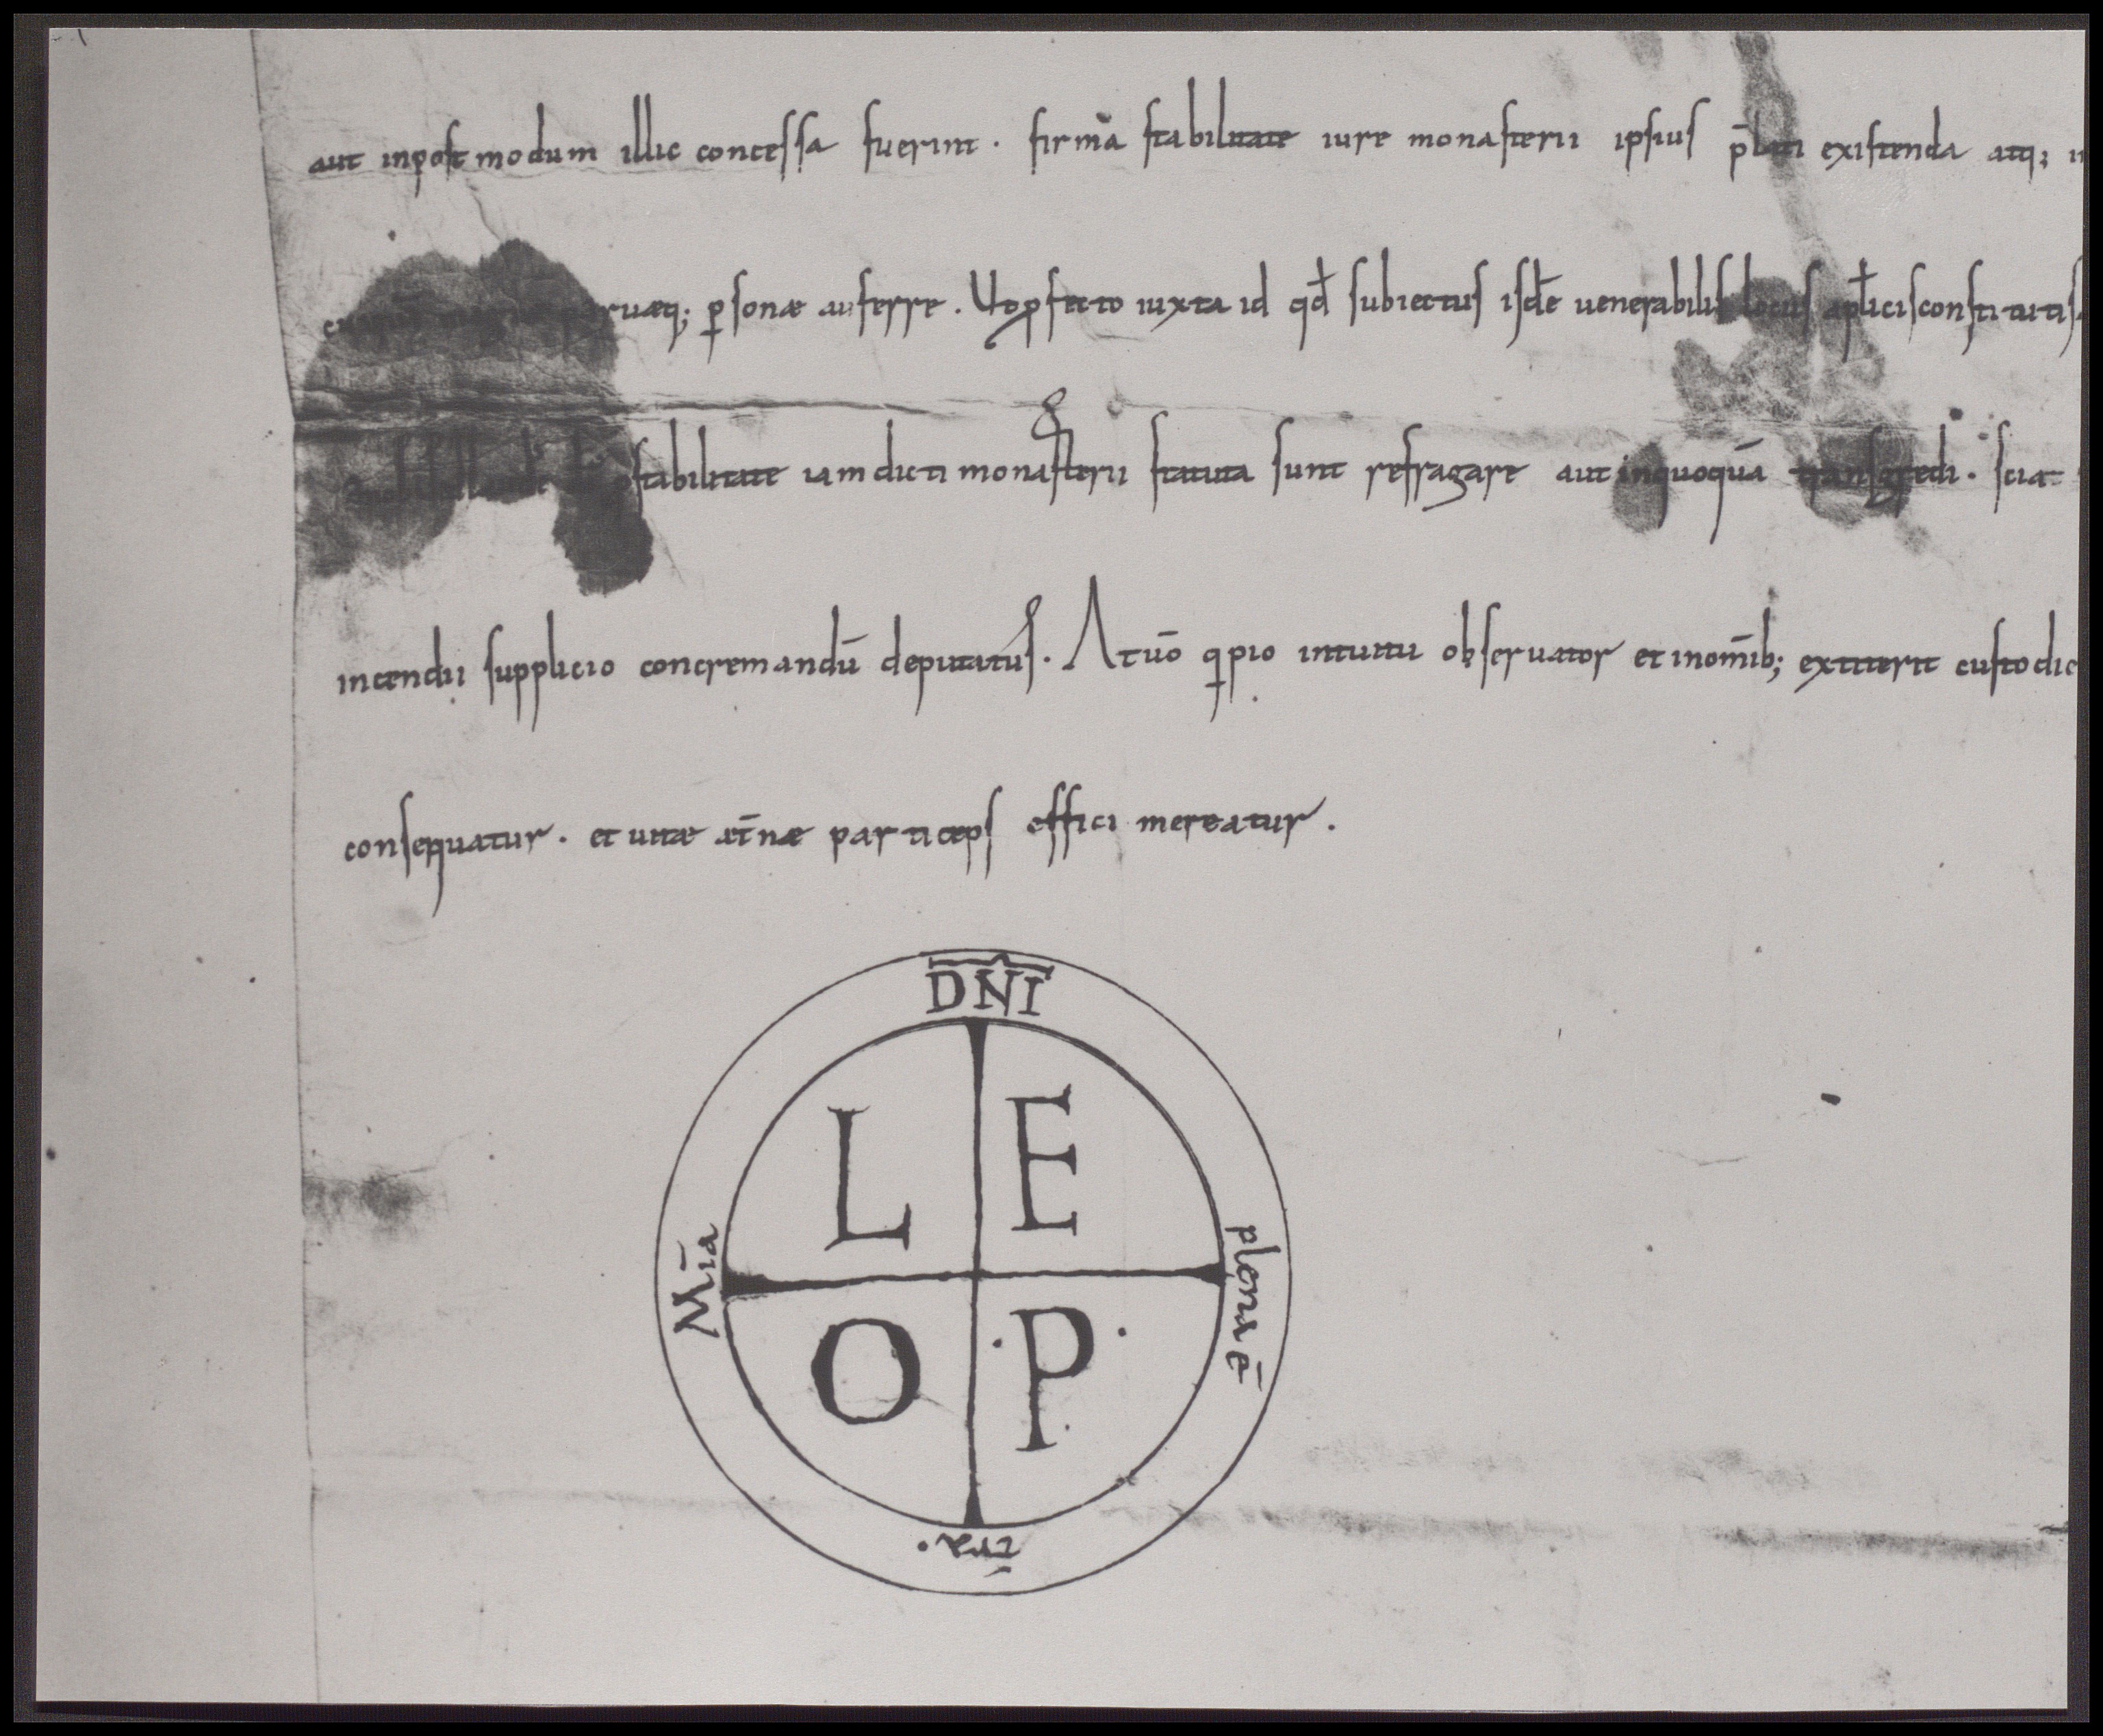 aut inpost modum illic concessa fuerint . firmā stabilitate iure monasterii ipsius p̄lati existenda atq;
ruæq; psonæ auferre . Uo pfecto iuxta id qđ subiectus isđe uenerabilis locus apłicis constitutis
stabilitate iam dicti monasterii statuta sunt refragare aut inquoquā transgredi . scia
incendii supplicio concremandū deputatus . At uō q pio intuitu obseruator et inom̄ib; extiterit custodie
consequatur . et uitæ æt̄næ particeps effici mereatur .
DNI
L E
Mīa
plena ē
O · P ·
t̄ra ·